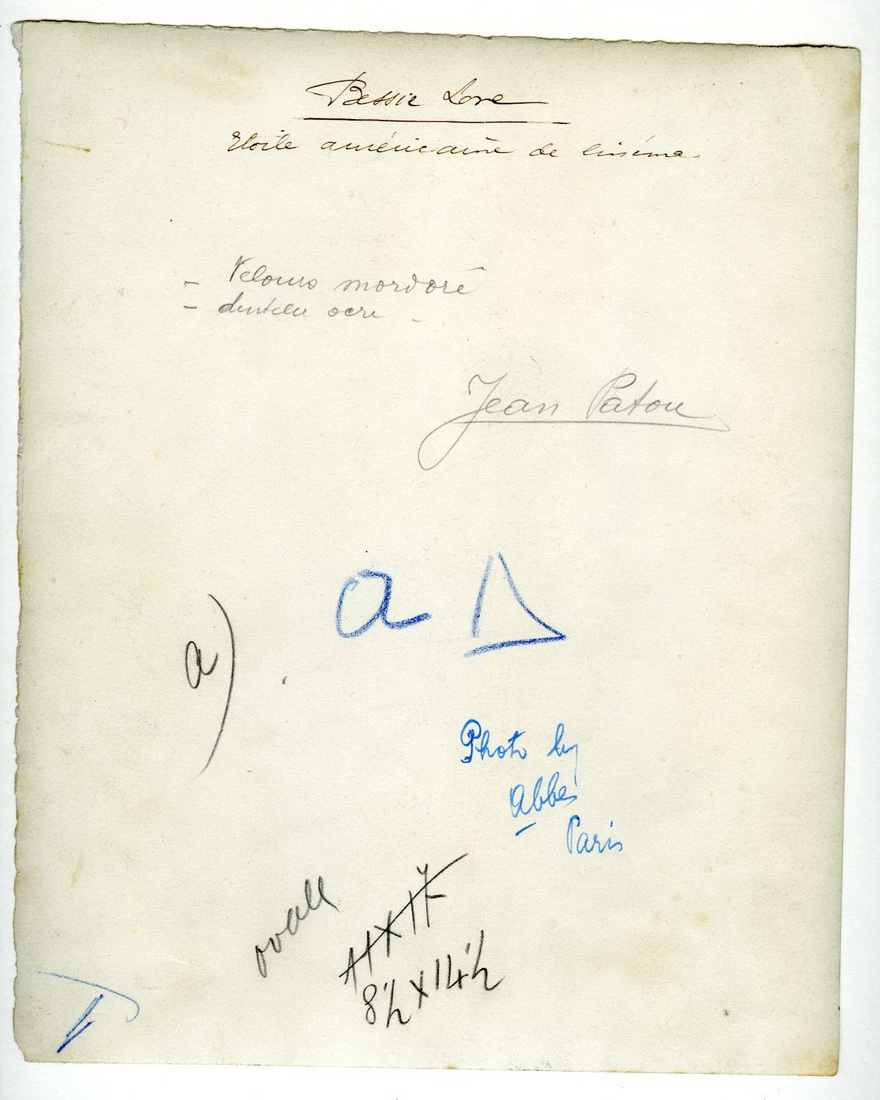 Bessie Love
Etoile américaine de cinéma
- Velours mordoré
- dentelle ocre -
Jean Patou
a
a)
Photo by
Abbe
Paris
ovale
11 x 17
8 1/2 x 14 1/2